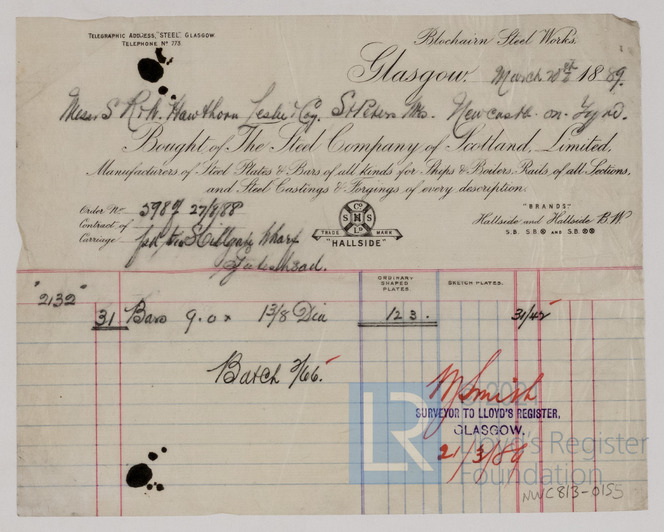 TELEGRAPHIC ADDRESS, "STEEL" GLASGOW
TELEPHONE No 773
Blochairn Steel Works.
Glasgow, March 20th 1889.
Messrs R & W. Hawthorn Leslie & Coy. St Peters Wks. Newcastle-on-Tyne.
Bought of The Steel Company of Scotland, Limited,
Manufacturers of Steel Plates & Bars of all kinds for Ships & Boilers, Rails of all Sections,
and Steel Castings & Forgings of every description.
Order No 5987 27/8/88
Contract of
Carriage Hillgate Wharf
Gateshead.
Co
S H S
Lo
TRADE MARK
"HALLSIDE"
"BRANDS"
Hallside and Hallside B.W
S.B. S.B.® AND S.B.®®
ORDINARY SHAPED PLATES.
SKETCH PLATES.
"2132"
31 Bars 9.0 x 1 3/8 Dia 12 3. 31/42
Batch 2/66.
M Smith
SURVEYOR TO LLOYD'S REGISTER,
GLASGOW,
21/3/89
LR
© 2021
Lloyd's Register
Foundation
NWC813-0155